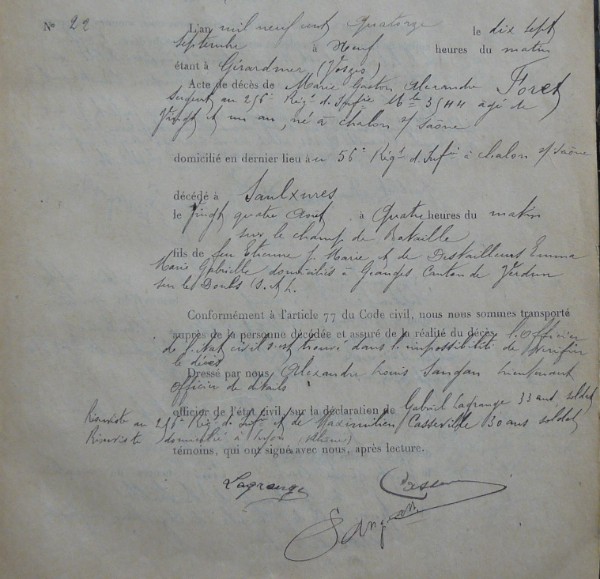 N° 22 L'an mil neuf cent Quatorze le dix sept
Septembre à Neuf heures du matin
étant à Gérardmer (Vosges)
Acte de décès de Marie Gaston Alexandre Foret
Sergent au 256e Régt d'Infie Mle 3544 agé de
Vingt et un ans, né à chalon s/ Saône
domicilié en dernier lieu à au 56e Régt d'Infie à chalon s/ Saône
décédé à Saulxures
le Vingt quatre Aout à Quatre heures du matin
sur le champ de Bataille
fils de feu Etienne J. Marie et de Destailleurs Emma
Marie Gabrielle domiciliés à Granges Canton de Verdun
sur le Doubs (S. et L.
Conformément à l'article 77 du Code civil, nous nous sommes transporté
auprès de la personne décédée et assuré de la réalité du décès l'Officier
de l'Etat civil s'est trouvé dans l'impossibilité de vérifier
le décès
Dressé par nous Alexandre Louis Sangan lieutenant
officier de détails
officier de l'état civil, sur la déclaration de Gabriel Lagrange 33 ans soldat
Réserviste au 256e Régt de Infie et de Maximilien Casseville 30 ans soldat
Réserviste domicilié à
témoins, qui ont signé avec nous, après lecture.
Lagrange
Sangan